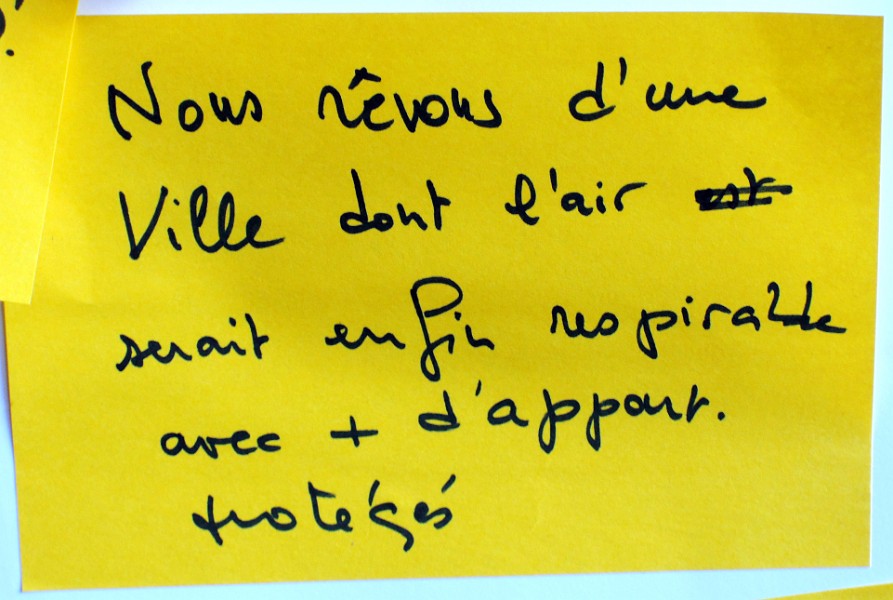 Nous rêvons d'une
Ville dont l'air
serait enfin respirable
avec + d'appart.
protégés